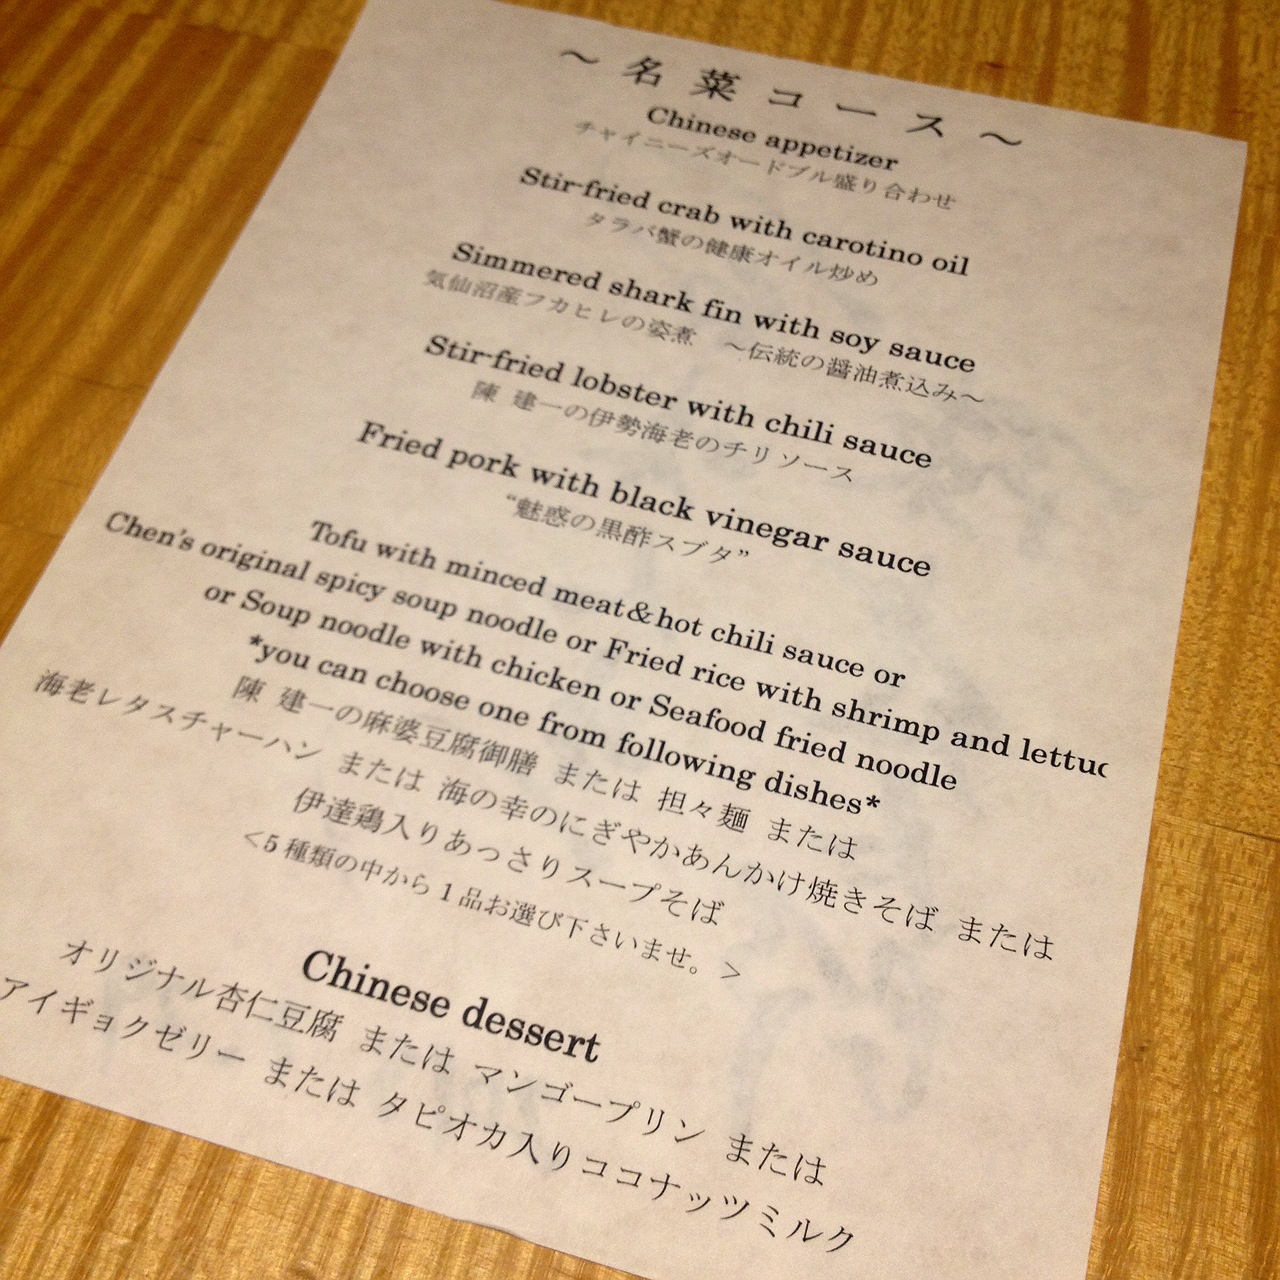 ～名菜コース～
Chinese appetizer
チャイニーズオードブル盛り合わせ
Stir-fried crab with carotino oil
タラバ蟹の健康オイル炒め
Simmered shark fin with soy sauce
気仙沼産フカヒレの姿煮　～伝統の醤油煮込み～
Stir-fried lobster with chili sauce
陳 建一の伊勢海老のチリソース
Fried pork with black vinegar sauce
“魅惑の黒酢スブタ”
Tofu with minced meat&hot chili sauce or
Chen's original spicy soup noodle or Fried rice with shrimp and lettuc
or Soup noodle with chicken or Seafood fried noodle
*you can choose one from following dishes*
陳 建一の麻婆豆腐御膳 または 担々麺 または
海老レタスチャーハン または 海の幸のにぎやかあんかけ焼きそば または
伊達鶏入りあっさりスープそば
＜5種類の中から1品お選び下さいませ。＞
Chinese dessert
オリジナル杏仁豆腐 または マンゴープリン または
アイギョクゼリー または タピオカ入りココナッツミルク